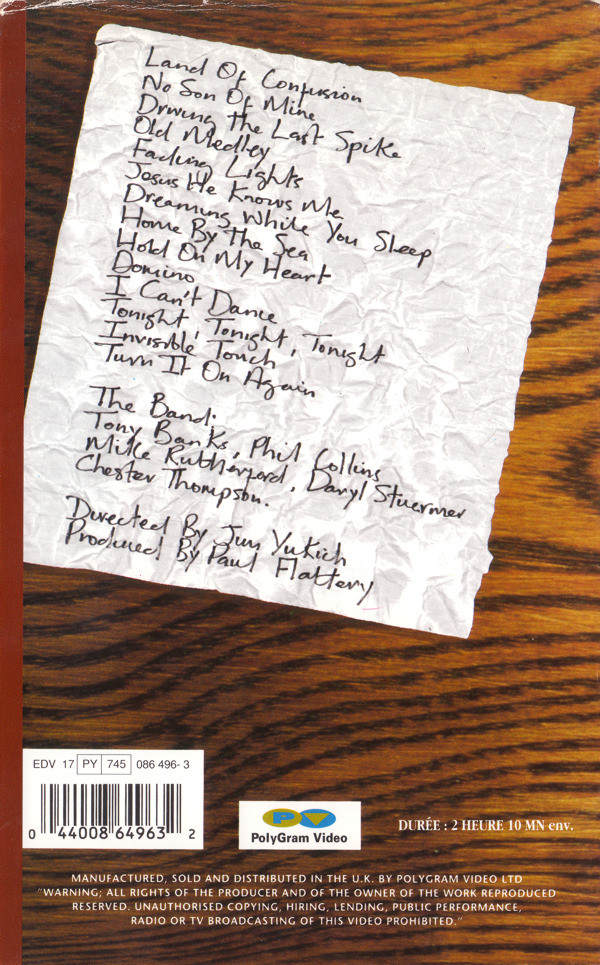 Land Of Confusion
No Son Of Mine
Driving The Last Spike
Old Medley
Fading Lights
Jesus He Knows Me
Dreaming While You Sleep
Home By The Sea
Hold On My Heart
Domino
I Can't Dance
Tonight, Tonight, Tonight
Invisible Touch
Turn It On Again
The Band:
Tony Banks, Phil Collins
Mike Rutherford, Daryl Stuermer
Chester Thompson.
Directed By Jim Yukich
Produced By Paul Flattery
EDV 17 PY 745 086 496-3
0 44008 64963 2
PV
PolyGram Video
DURÉE : 2 HEURE 10 MN env.
MANUFACTURED, SOLD AND DISTRIBUTED IN THE U.K. BY POLYGRAM VIDEO LTD
"WARNING; ALL RIGHTS OF THE PRODUCER AND OF THE OWNER OF THE WORK REPRODUCED
RESERVED. UNAUTHORISED COPYING, HIRING, LENDING, PUBLIC PERFORMANCE,
RADIO OR TV BROADCASTING OF THIS VIDEO PROHIBITED."